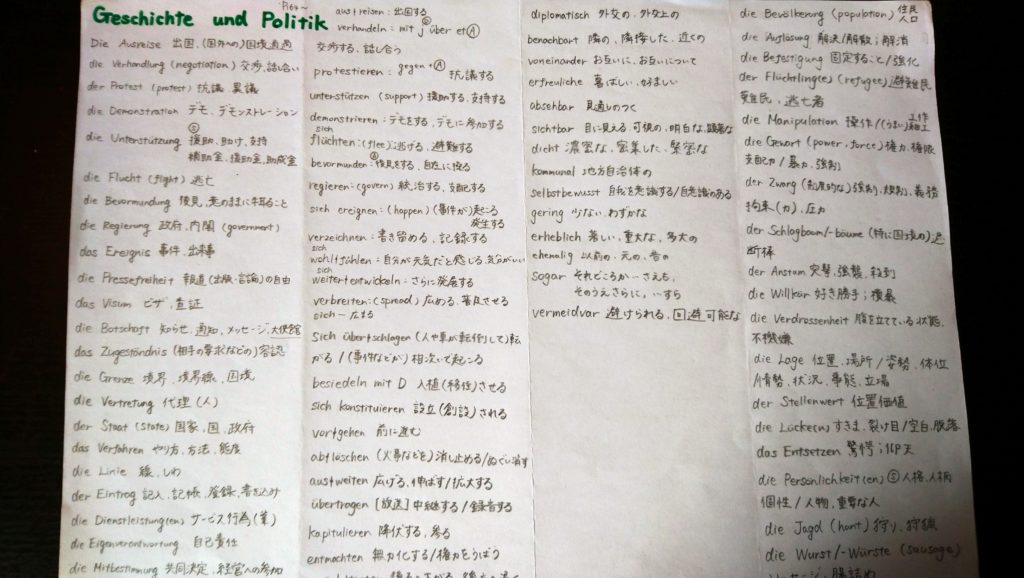 Geschichte und Politik
P.64~
Die Ausreise 出国、(国外への)国境通過
die Verhandlung (negotiation) 交渉、話し合い
der Protest (protest) 抗議 異議
die Demonstration デモ、デモンストレーション
die Unterstützung Ⓢ 援助、助け、支持
補助金、援助金、助成金
die Flucht (flight) 逃亡
die Bevormundung 後見、意のままに牛耳ること
die Regierung 政府、内閣 (government)
das Ereignis 事件、出来事
die Pressefreiheit 報道(出版・言論)の自由
das Visum ビザ、査証
die Botschaft 知らせ、通知、メッセージ、大使館
das Zugeständnis (相手の要求などの) 容認
die Grenze 境界、境界線、国境
die Vertretung 代理(人)
der Staat (state) 国家、国、政府
das Verfahren やり方、方法、態度
die Linie 線、しわ
der Eintrag 記入、記帳、登録、書き込み
die Dienstleistung(en) サービス行為(業)
die Eigenverantwortung 自己責任
die Mitbestimmung 共同決定、経営への参加
ausreisen: 出国する
verhandeln: mit j Ⓓ über et Ⓐ
交渉する、話し合う
protestieren: gegen + Ⓐ 抗議する
unterstützen (support) 援助する、支持する
demonstrieren: デモをする、デモに参加する
sich
flüchten: (flee) 逃げる、避難する
bevormunden: Ⓐ 後見をする、自在に操る
regieren: (govern) 統治する、支配する
sich ereignen: (happen) (事件が)起こる
発生する
verzeichnen: 書き留める、記録する
sich
wohlfühlen: 自分が元気だと感じる、気分がいい
sich
weiterentwickeln: さらに発展する
verbreiten: (spread) 広める、普及させる
sich ~ 広まる
sich überschlagen (人や車が転倒して)転
がる / (事件などが) 相次いで起こる
besiedeln mit D 入植(移住)させる
sich konstituieren 設立(創設)される
vorgehen 前に進む
ablöschen (火事などを)消し止める/ぬぐい消す
ausweiten 広げる、伸ばす/拡大する
übertragen [放送]中継する/録音する
kapitulieren 降伏する、参る
entmachten 無力化する/権力をうばう
diplomatisch 外交の、外交上の
benachbart 隣の、隣接した、近くの
voneinander お互いに、お互いについて
erfreuliche 喜ばしい、好ましい
absehbar 見通しのつく
sichtbar 目に見える、可視の、明白な、顕著な
dicht 濃密な、密集した、緊密な
kommunal 地方自治体の
selbstbewusst 自我を意識する/自意識のある
gering 少ない、わずかな
erheblich 著しい、重大な、多大の
ehemalig 以前の、元の、昔の
sogar それどころか…さえも、
そのうえさらに、…すら
vermeidvar 避けられる、回避可能な
die Bevölkerung (population) 住民
人口
die Auflösung 解決/解散;解消
die Befestigung 固定すること/強化
der Flüchtling(e) (refugee) 避難民
難民、逃亡者
die Manipulation 操作/(うまい) 工作
細工
die Gewart (power, force) 権力、権限
支配力/暴力、強制
der Zwang (制度的な)強制、規制、義務
拘束(力)、圧力
der Schlagbaum/-bäume (特に国境の)遮
断棒
der Ansturm 突撃、強襲、殺到
die Willkür 好き勝手;横暴
die Verdrossenheit 腹を立てている状態、
不機嫌
die Lage 位置、場所/姿勢、体位
/情勢、状況、事態、立場
der Stellenwert 位置価値
die Lücke(n) すきま、裂け目/空白、脱落
das Entsetzen 驚愕;仰天
die Persönlichkeit(en) Ⓢ 人格、人柄
個性/人物、重要な人
die Jagd (hant) 狩り、狩猟
die Wurst/-Würste (sausage)